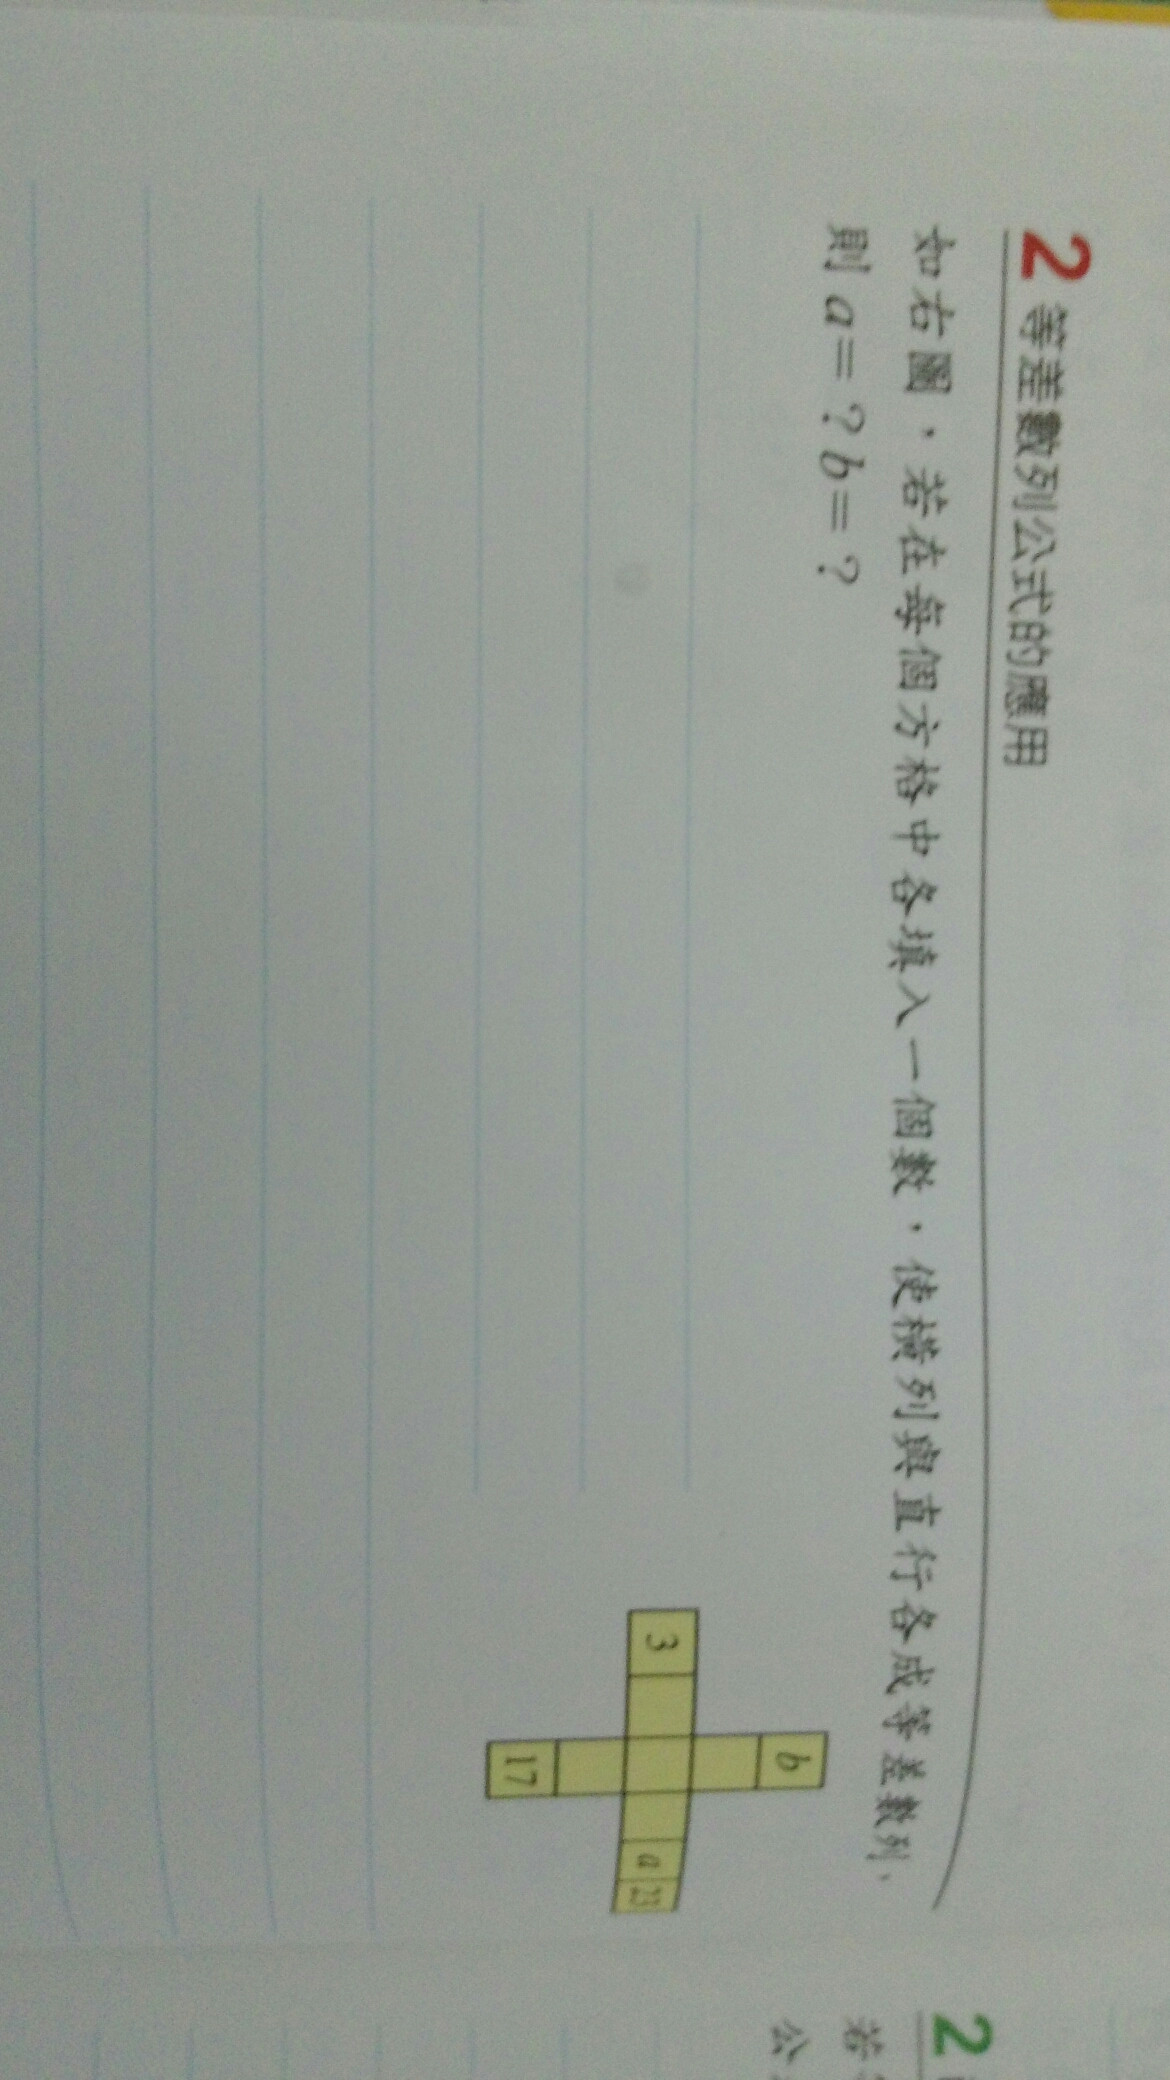 2 等差數列公式的應用
如右圖,若在每個方格中各填入一個數,使橫列與直行各成等差數列,
則 a=?b=?
b
3 a 23
17
2
若
公